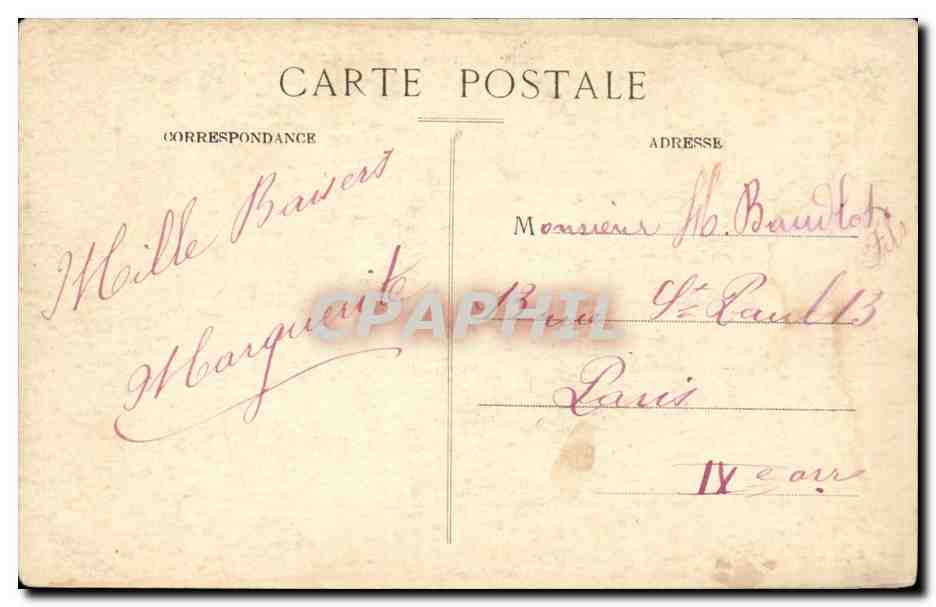 CARTE POSTALE
CORRESPONDANCE
Mille Baisers
Marguerite
ADRESSE
Monsieur M. Baudlot
Fils
13 rue St Paul 13
Paris
IX e arr.
CPAPHIL